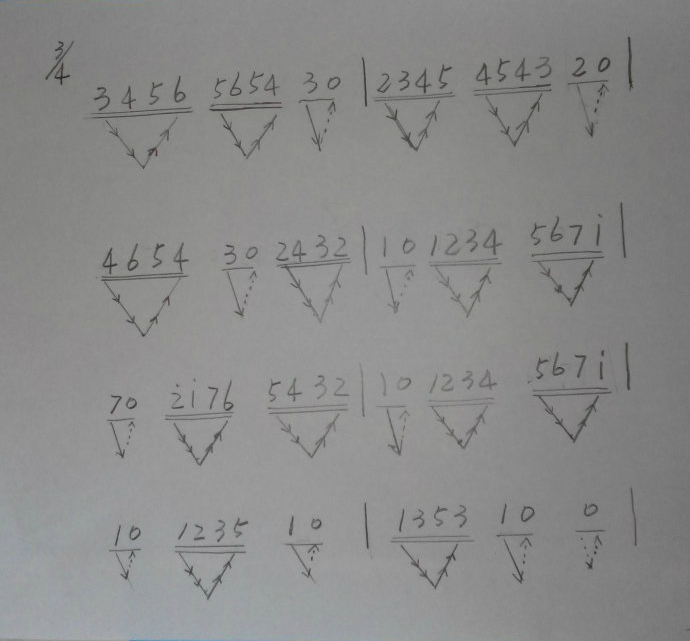 3/4 3456 5654 30 | 2345 4543 20 |
4654 30 2432 | 10 1234 567i |
70 2̇i76 5432 | 10 1234 567i |
10 1235 10 | 1353 10 0 |